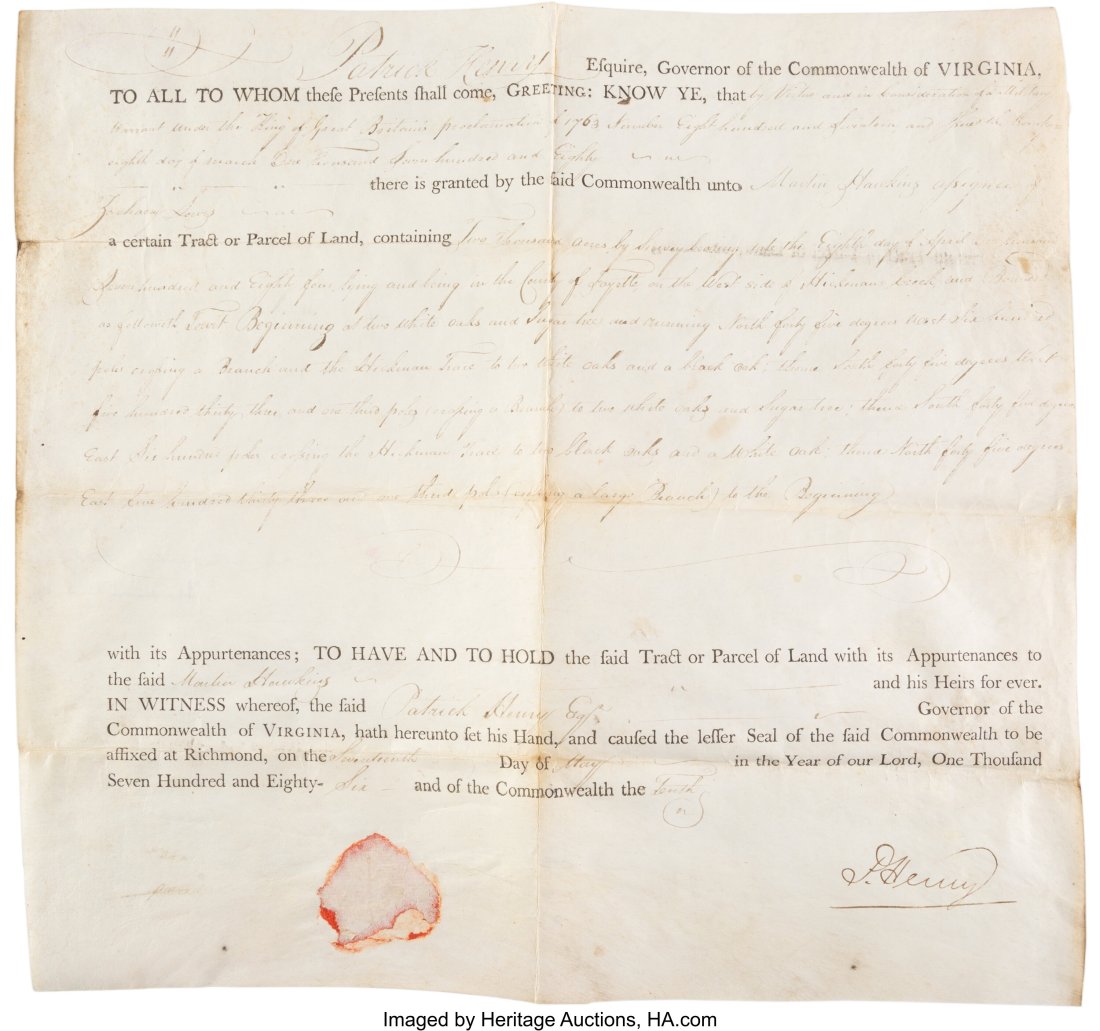 Patrick Henry Esquire, Governor of the Commonwealth of VIRGINIA,
TO ALL TO WHOM theſe Preſents ſhall come, GREETING: KNOW YE, that by Virtue and in Consideration of a Military
warrant under the King of Great Britain's proclamation of 1763 Number Eight hundred and Seventeen and Issued the Twenty
eighth day of march One thousand Seven hundred and Eighty
there is granted by the ſaid Commonwealth unto Martin Hawkins assignee of
Zachary Lewis
a certain Tract or Parcel of Land, containing Two Thousand acres by Survey bearing date the Eighth day of April
Seven hundred and Eighty four lying and being in the County of Fayette on the West side of Hickmans creek and Bounded
as followeth Towit Beginning at two white oaks and Sugar tree and running North forty five degrees West Six hundred
poles crossing a Branch and the Hickman Trace to two white oaks and a black oak; thence South forty five degrees West
five hundred thirty three and one third poles (crossing a Branch) to two white oaks and Sugar tree; thence South forty five degrees
East Six hundred poles crossing the Hickman Trace to two black oaks and a White oak; thence North forty five degrees
East five hundred thirty three and one third poles (crossing a large Branch) to the Beginning
with its Appurtenances; TO HAVE AND TO HOLD the ſaid Tract or Parcel of Land with its Appurtenances to
the ſaid Martin Hawkins and his Heirs for ever.
IN WITNESS whereof, the ſaid Patrick Henry Esqr. Governor of the
Commonwealth of VIRGINIA, hath hereunto ſet his Hand, and cauſed the leſſer Seal of the ſaid Commonwealth to be
affixed at Richmond, on the Seventeenth Day of May in the Year of our Lord, One Thouſand
Seven Hundred and Eighty- Six and of the Commonwealth the Tenth
P. Henry
Imaged by Heritage Auctions, HA.com